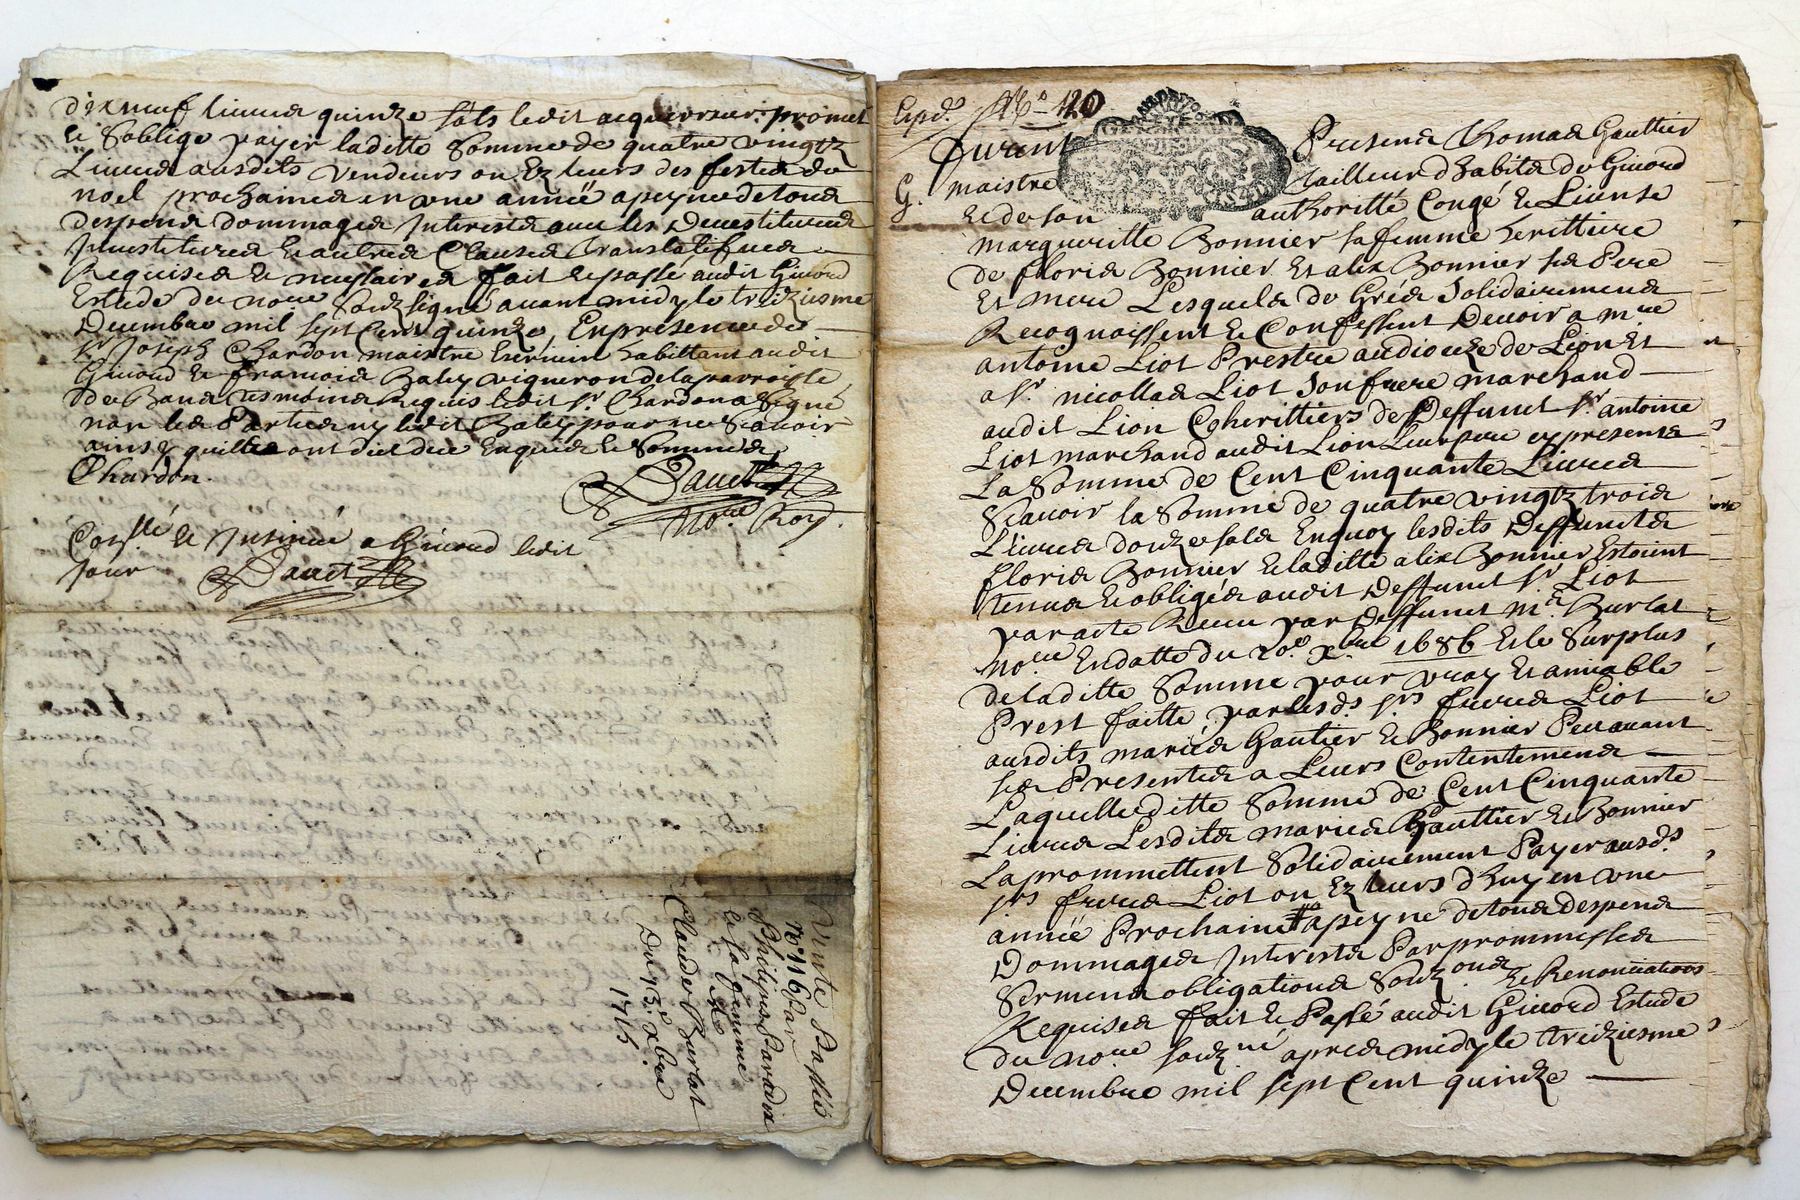 dixneuf livres quinze sols ledit acquereur promet
& soblige payer laditte somme de quatre vingtz
Livres ausdits vendeurs ou Ez leurs des festes de
noel prochaines en une année apeyne de tous
despens dommages Interests avec les Devestitures
Investitures & autres Clauses translatifves
Requises & necessaires fait & passé audit Givord
Estude du no.re souzsigné avant midy le treiziesme
Decembre mil sept Cent quinze, En presence de
s.r Joseph Chardon maistre Escrivain habittant audit
Givord & francois Baley vigneron de la parroisse
de Bans tesmoins Requis ledit s.r Chardon a signé
non les Parties ny ledit Baley pour ne scavoir
ainsy quilles ont dict de ce Enquis & Sommés
Chardon.
Dauet
No.re Roy.
Con.llé & Insinué a Givord ledit
Jour Dauet
Vente Passée
No. 116 Par
Philipe Paradix
& sa femme
A
Claude Burlat
Du 13.e xbre
1715
Exp.d. N.o 120
Furent Presens Thomas Gauttier
G. maistre tailleur dhabits de Givord
& de son authoritté Congé & License
margueritte Bonnier sa femme herittiere
de floris Bonnier Et alix Bonnier ses Pere
Et mere Lesquels de Grés Solidairement
Recognoissent & Confessent Devoir a m.re
antoine Liot Prestre au dioceze de Lion Et
a s.r nicollas Liot son frere marchand
audit Lion Coherittiers de Deffunct s.r antoine
Liot marchand audit Lion Leur pere cy presents
La Somme de Cent Cinquante Livres
Scavoir la Somme de quatre vingtz trois
Livres douze sols Enquoy lesdits Deffuncts
floris Bonnier & laditte alix Bonnier Estoient
tenus & obligés audit Deffunct s.r Liot
par acte Receu par Deffunct m.e Burlat
No.re En datte du 20.e xbre 1686 Et le Surplus
de laditte Somme pour vray Et amiable
Prest faitte par lesd.s s.rs freres Liot
ausdits mariés Gautier & Bonnier Peu avant
ses Presentes a Leurs Contentement
Laquelleditte Somme de Cent Cinquante
Livres Lesdits mariés Gauttier & Bonnier
La promettent Solidairement Payer ausd.s
s.rs freres Liot ou Ez leurs d'huy en une
année Prochaine apeyne de tous despens
Dommages Interests Par prommesses
Sermens obligations Souz.ons & Renonciations
Requises fait & Passé audit Givord Estude
du no.re souz.né apres midy le treiziesme
Decembre mil sept Cent quinze